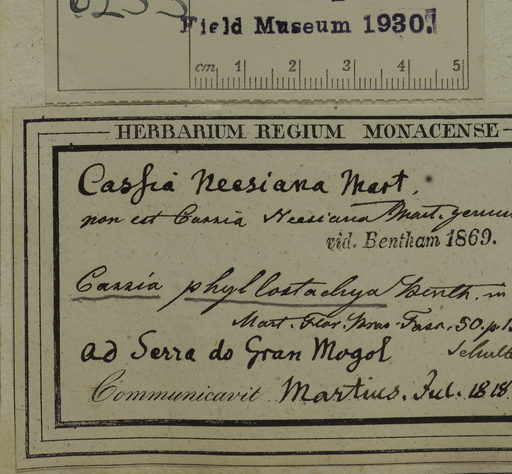 Field Museum 1930.
cm 1 2 3 4 5
HERBARIUM REGIUM MONACENSE
Cassia Neesiana Mart.
non est Cassia Neesiana Mart.
vid. Bentham 1869.
Cassia phyllostachya Benth. in
Mart. Flor. Bras. Fasc. 50. p.
ad Serra do Gran Mogol
Communicavit Martius. Jul. 1818